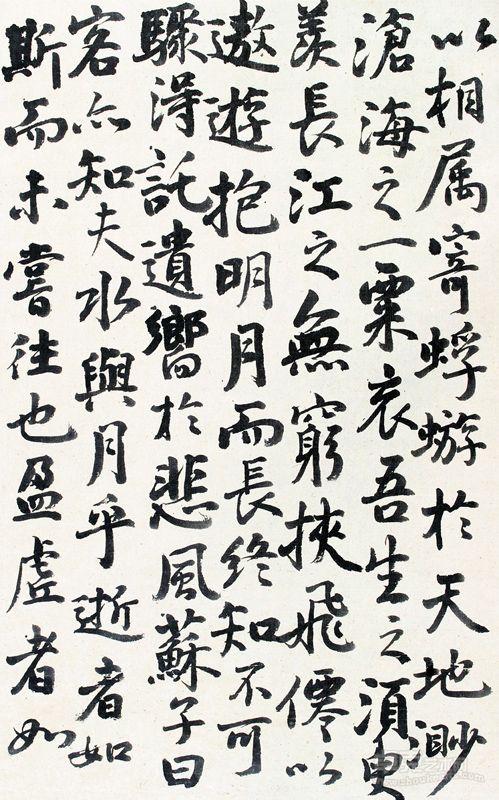 以相属寄蜉蝣於天地渺
滄海之一粟哀吾生之須臾
羨長江之無窮挾飛僊以
遨遊抱明月而長終知不可
驟得託遺嚮於悲風蘇子曰
客亦知夫水與月乎逝者如
斯而未嘗往也盈虛者如